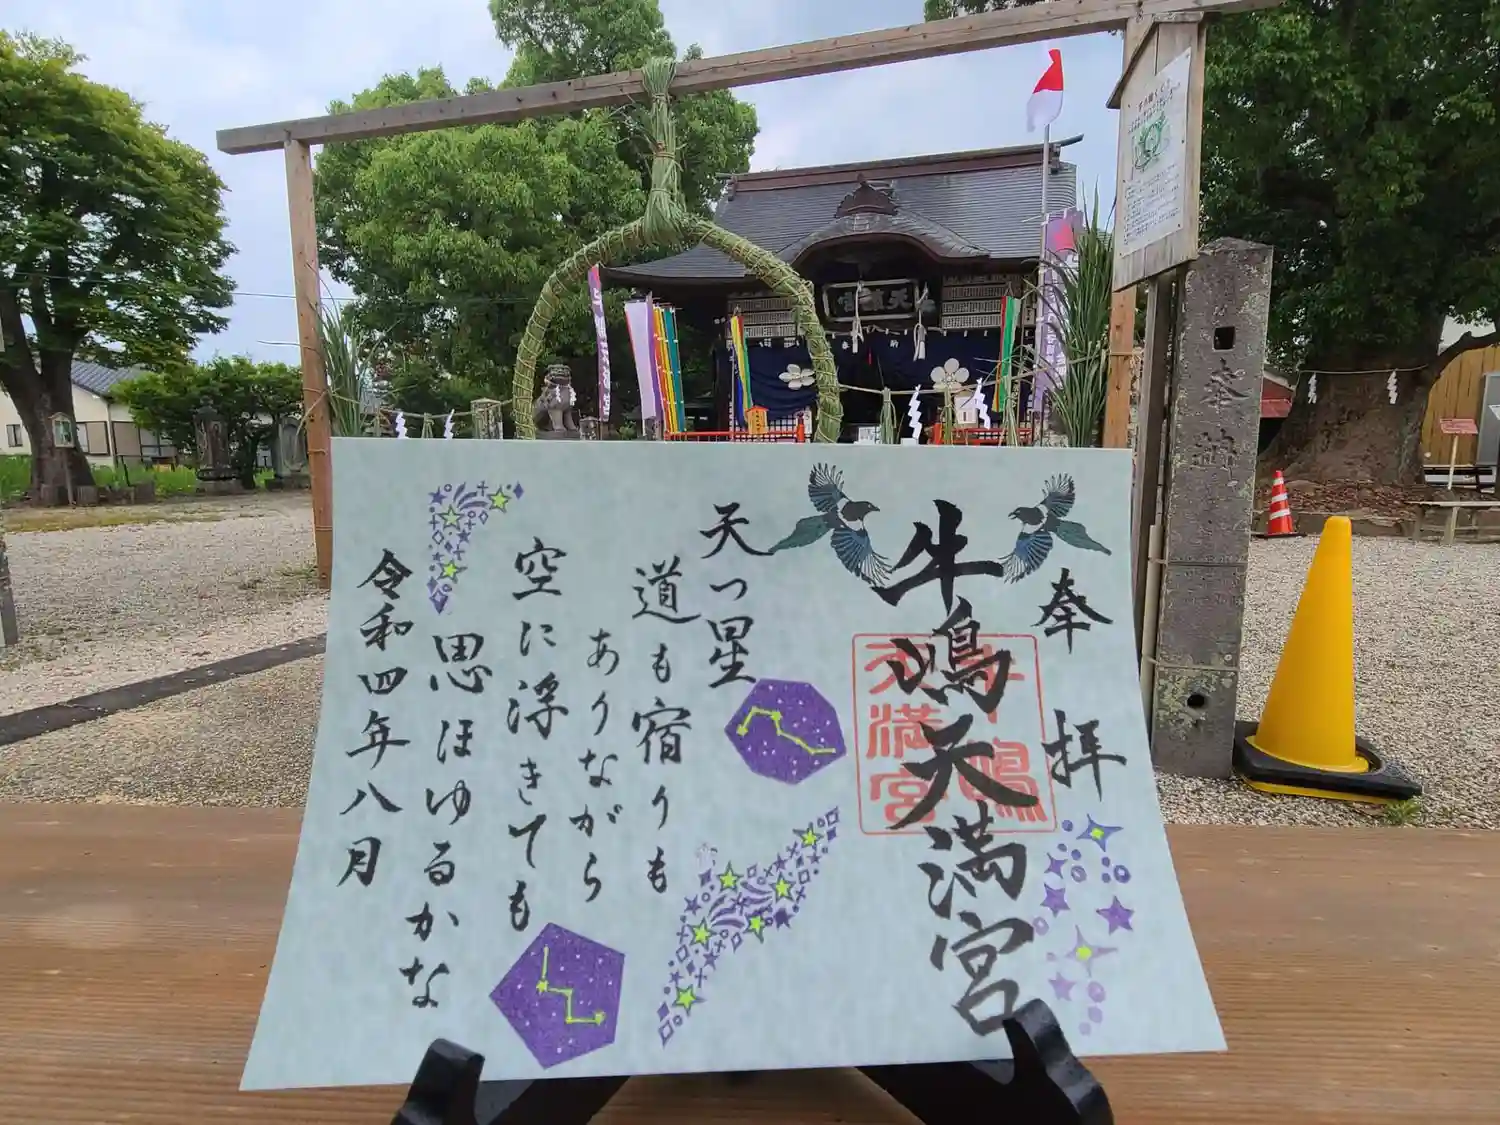 奉拝
牛嶋天満宮
天つ星
道も宿りも
ありながら
空に浮きても
思ほゆるかな
令和四年八月
牛嶋
天満宮
天満宮
奉